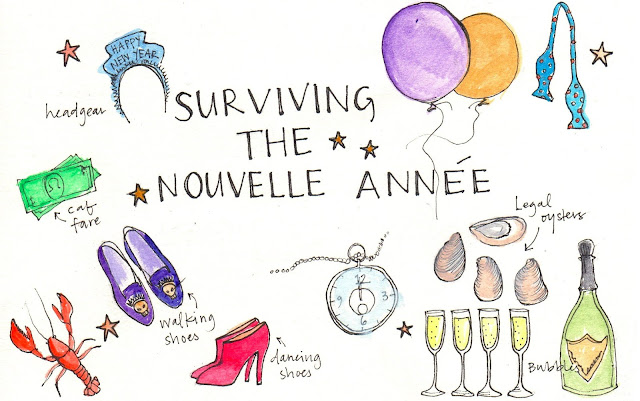 HAPPY
NEW YEAR
headgear
SURVIVING
THE
NOUVELLE ANNÉE
cab
fare
Legal
oysters
walking
shoes
dancing
shoes
12
9
3
6
Bubbles